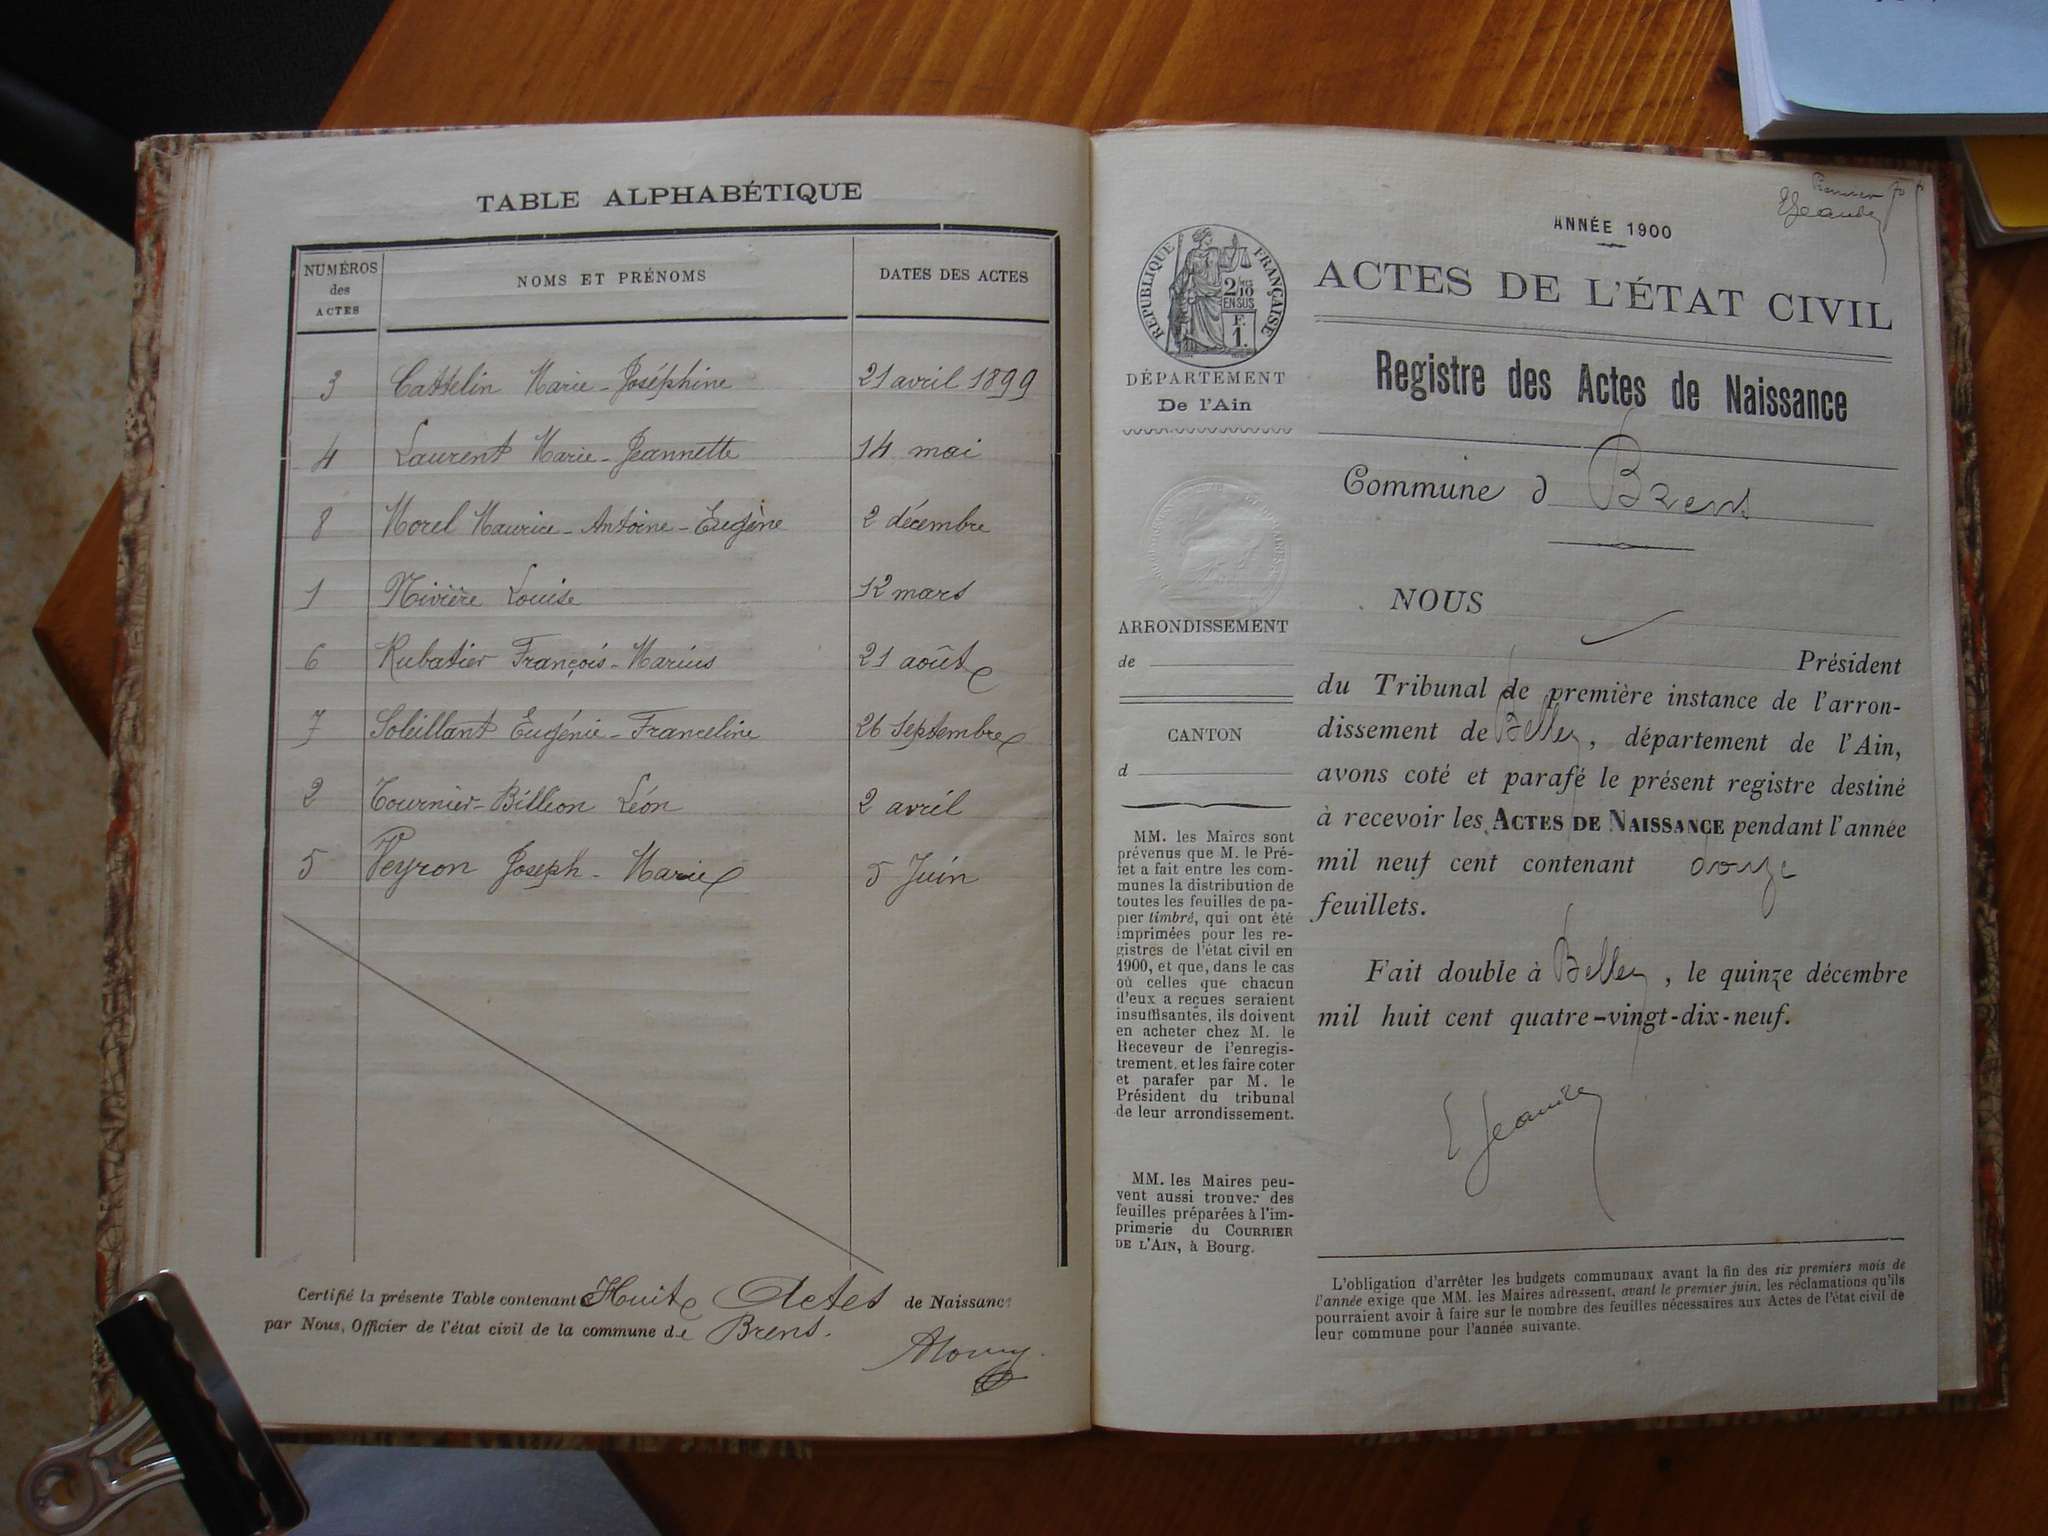 TABLE ALPHABÉTIQUE
NUMÉROS des ACTES NOMS ET PRÉNOMS DATES DES ACTES
3 Cattelin Marie-Joséphine 21 avril 1899
4 Laurent Marie-Jeannette 14 mai
8 Morel Maurice-Antoine-Eugène 2 décembre
1 Rivière Louise 12 mars
6 Rubatier François-Marius 21 août
7 Soleillant Eugénie-Franceline 26 Septembre
2 Tournier-Billion Léon 2 avril
5 Veyron Joseph-Marie 5 Juin
Certifié la présente Table contenant Huit Actes de Naissance
par Nous, Officier de l'état civil de la commune de Brens.
ANNÉE 1900
RÉPUBLIQUE FRANÇAISE
2/10 EN SUS
F. 1.
ACTES DE L'ÉTAT CIVIL
Registre des Actes de Naissance
Commune d Brens
DÉPARTEMENT
De l'Ain
ARRONDISSEMENT
de
CANTON
d
MM. les Maires sont
prévenus que M. le Pré-
fet a fait entre les com-
munes la distribution de
toutes les feuilles de pa-
pier timbré, qui ont été
imprimées pour les re-
gistres de l'état civil en
1900, et que, dans le cas
où celles que chacun
d'eux a reçues seraient
insuffisantes, ils doivent
en acheter chez M. le
Receveur de l'enregis-
trement, et les faire coter
et parafer par M. le
Président du tribunal
de leur arrondissement.
MM. les Maires peu-
vent aussi trouver des
feuilles préparées à l'im-
primerie du COURRIER
DE L'AIN, à Bourg.
NOUS
Président
du Tribunal de première instance de l'arron-
dissement de Belley, département de l'Ain,
avons coté et parafé le présent registre destiné
à recevoir les ACTES DE NAISSANCE pendant l'année
mil neuf cent contenant douze
feuillets.
Fait double à Belley, le quinze décembre
mil huit cent quatre-vingt-dix-neuf.
L'obligation d'arrêter les budgets communaux avant la fin des six premiers mois de
l'année exige que MM. les Maires adressent, avant le premier juin, les réclamations qu'ils
pourraient avoir à faire sur le nombre des feuilles nécessaires aux Actes de l'état civil de
leur commune pour l'année suivante.